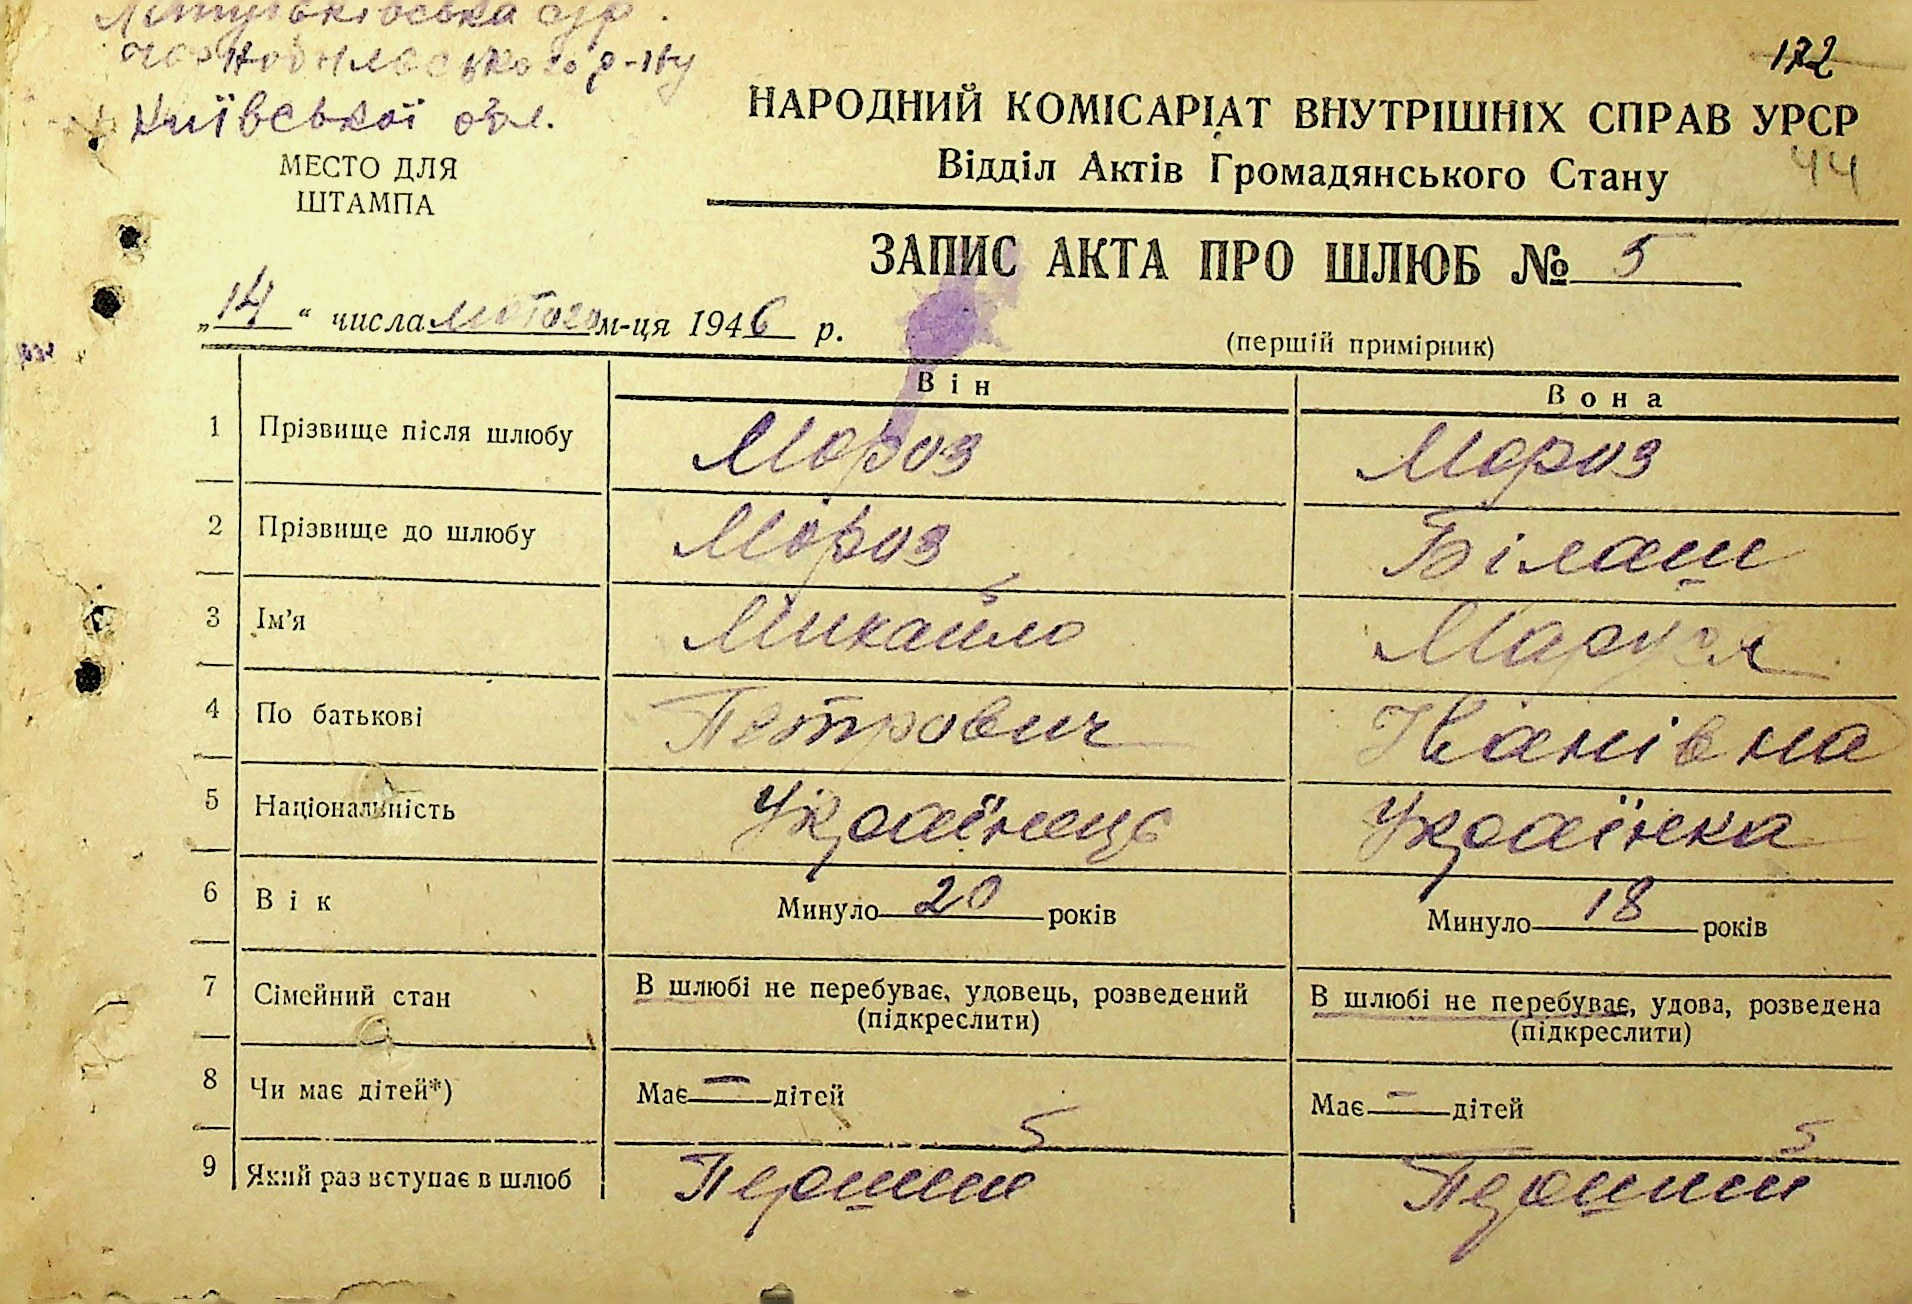 с/р.
Чорнобильського р-ну
Київської обл.
172
МЕСТО ДЛЯ
ШТАМПА
НАРОДНИЙ КОМІСАРІАТ ВНУТРІШНІХ СПРАВ УРСР
Відділ Актів Громадянського Стану
44
ЗАПИС АКТА ПРО ШЛЮБ № 5
„14“ числа лютого м-ця 1946 р.
(першій примірник)
Він Вона
1 Прізвище після шлюбу Мороз Мороз
2 Прізвище до шлюбу Мороз Білаш
3 Ім’я Михайло Маруся
4 По батькові Петрович Іванівна
5 Національність Українець Українка
6 Вік Минуло 20 років Минуло 18 років
7 Сімейний стан В шлюбі не перебуває, удовець, розведений (підкреслити) В шлюбі не перебуває, удова, розведена (підкреслити)
8 Чи має дітей*) Має — дітей Має — дітей
9 Який раз вступає в шлюб Перший Перший